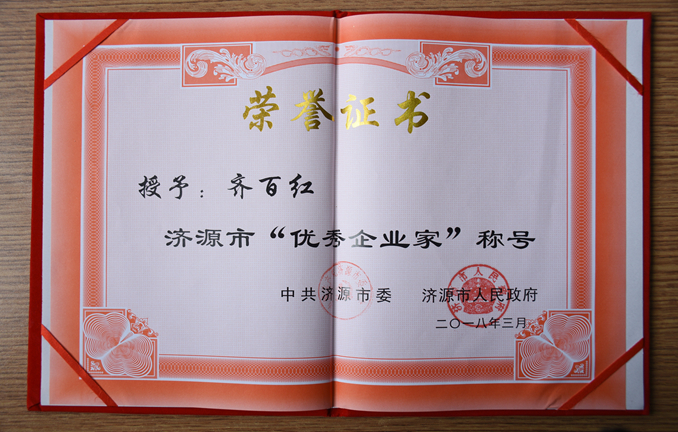 荣誉证书
授予：齐百红
济源市“优秀企业家”称号
中共济源市委 济源市人民政府
二〇一八年三月